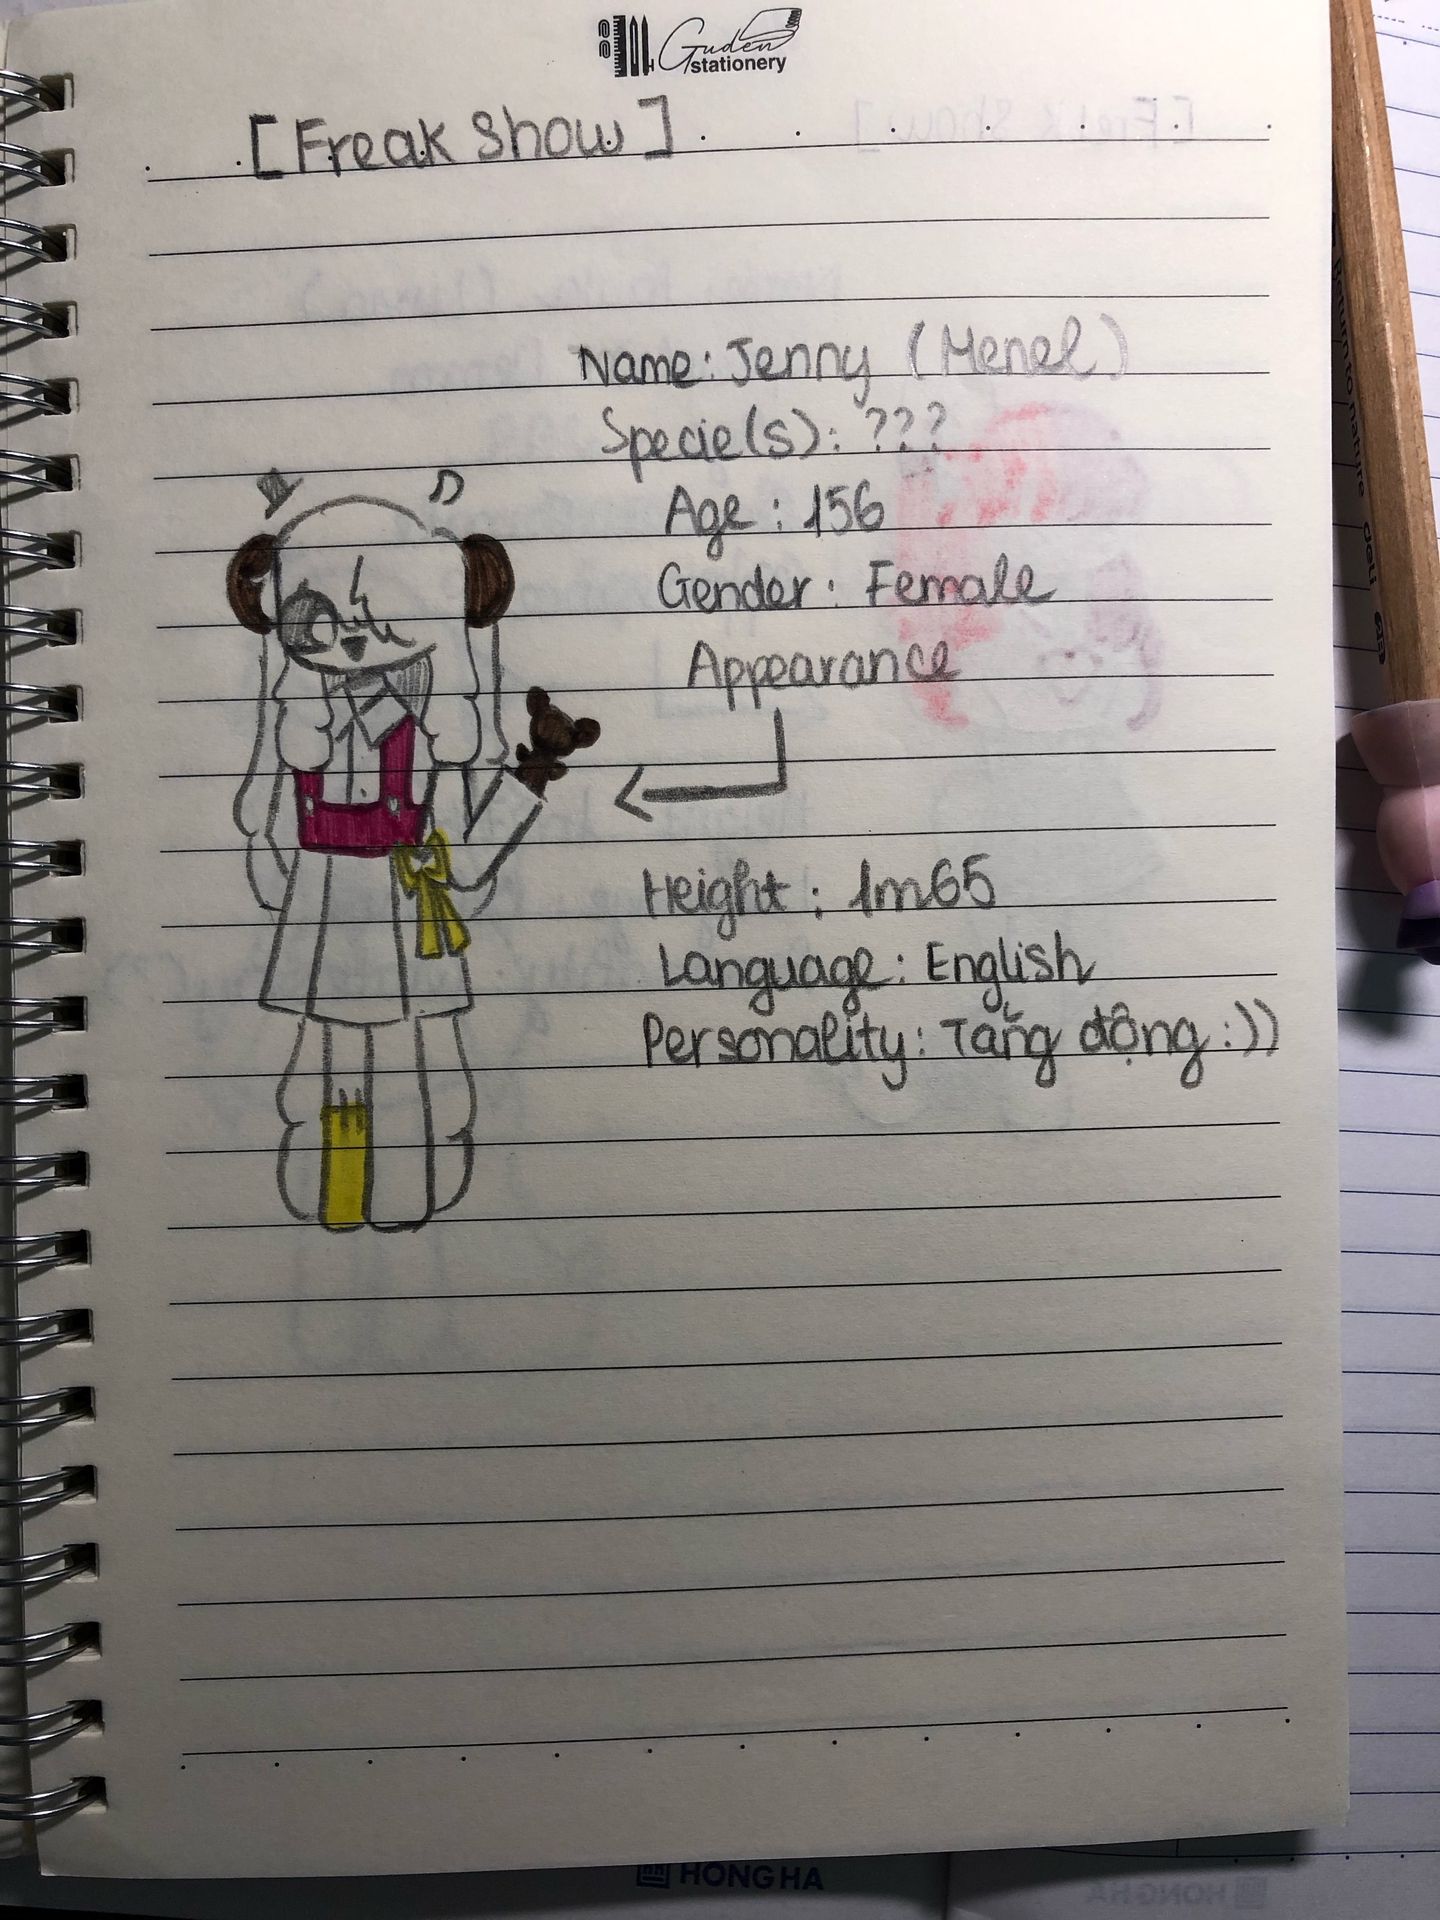 Guden
stationery
[Freak Show]
Name: Jenny (Menel)
Specie(s): ???
Age: 156
Gender: Female
Appearance
Height: 1m65
Language: English
Personality: Tăng động :))
HONG HA
deli